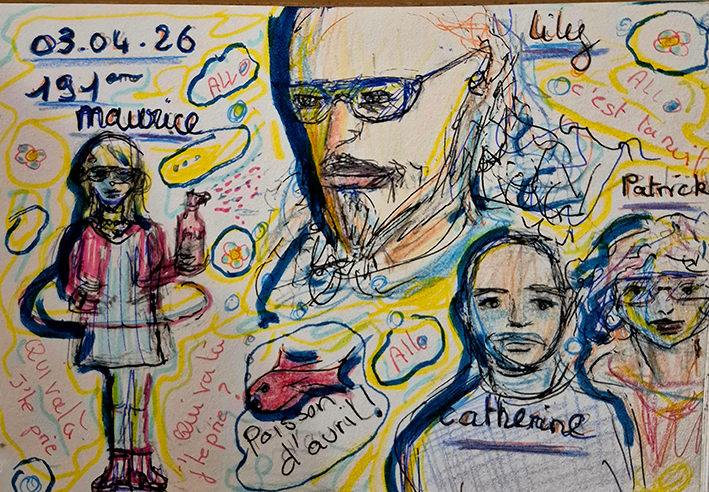 03.04.26
191ème
maurice
ALLO
lily
ALLO
c'est la nuit
Patrick
Qui va là
j'te prie
Qui va là
j'te prie ?
Poisson
d'avril!
Allo
Catherine